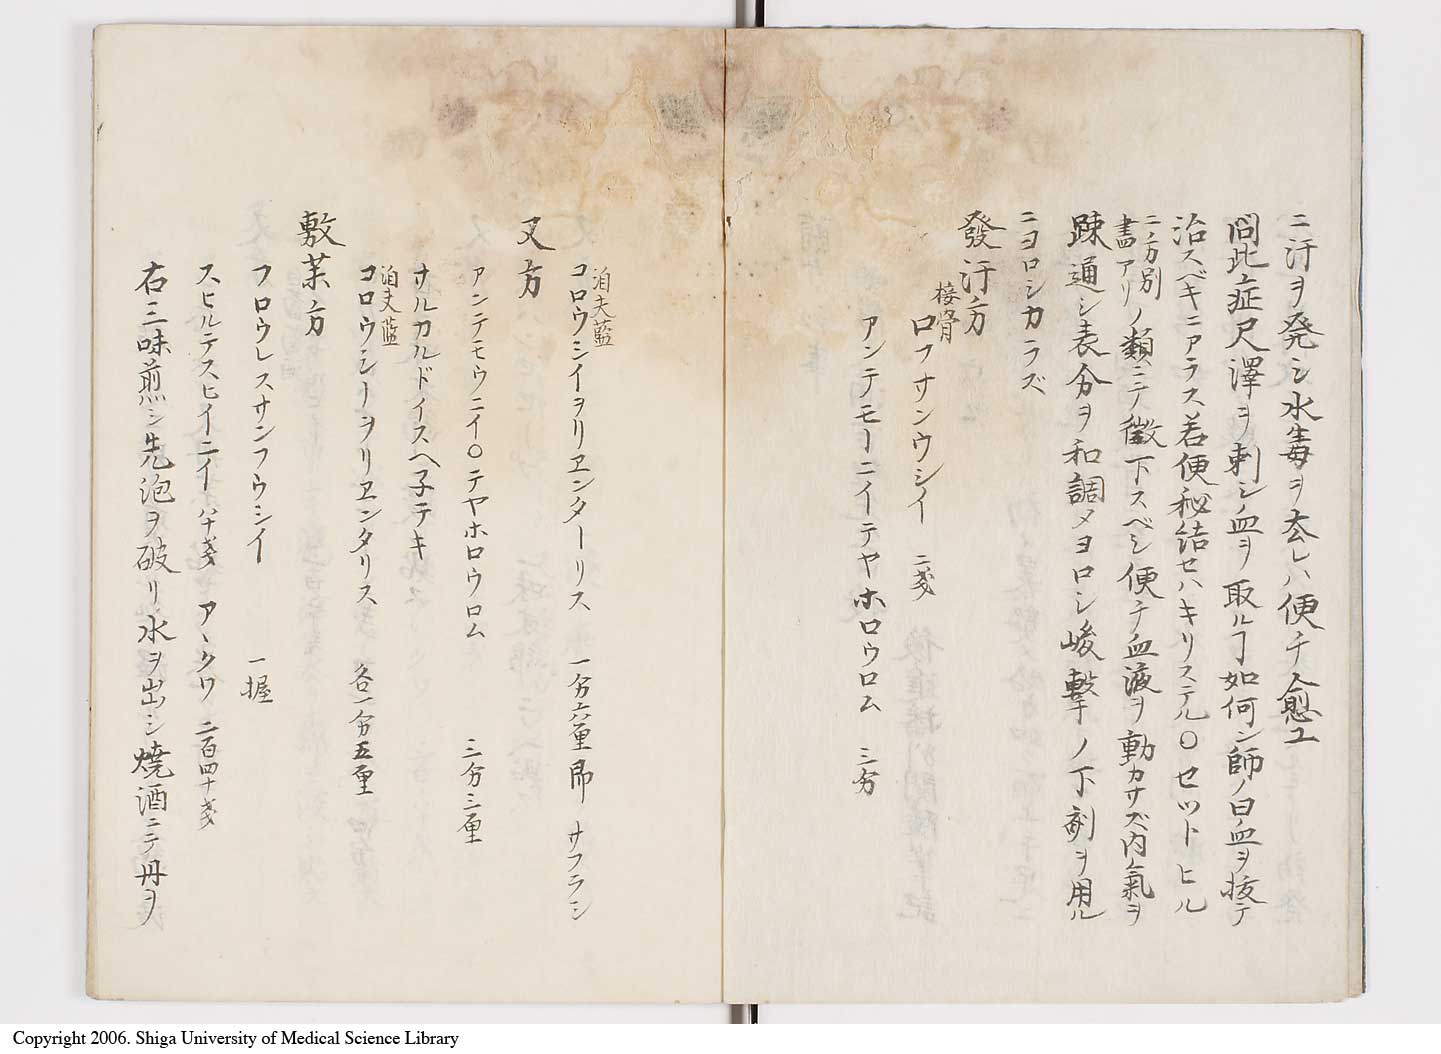 ニ汗ヲ発シ水毒ヲ去レハ便チ愈ユ
問此症尺澤ヲ刺シ血ヲ取ルヿ如何ン師ノ曰血ヲ抜テ
治スベキニアラス若便秘結セハキリステル〇セツトヒル
ニノ方別ニ書アリノ類ニテ徴下スベシ便チ血液ヲ動カサズ内氣ヲ
疎通シ表分ヲ和調メヨロシ峻撃ノ下剤ヲ用ル
ニヨロシカラズ
發汗方
接骨
ロフサンウシイ 二戔
アンテモーニイテヤホロウロム 三分
泊夫藍
コロウシイヲリヱンターリス 一分六厘 即サフラン
又方
アンテモウニイ〇テヤホロウロム 三分三厘
サルカルドイスヘ子テキ
泊夫藍
コロウシーヲリヱンタリス 各一分五厘
敷茉方
フロウレスサンフウシイ 一握
スヒルテスヒイニイ 八十戔 アヽクワ 二百四十戔
右三味煎シ先泡ヲ破リ水ヲ出シ焼酒ニテ丹ヲ
Copyright 2006. Shiga University of Medical Science Library